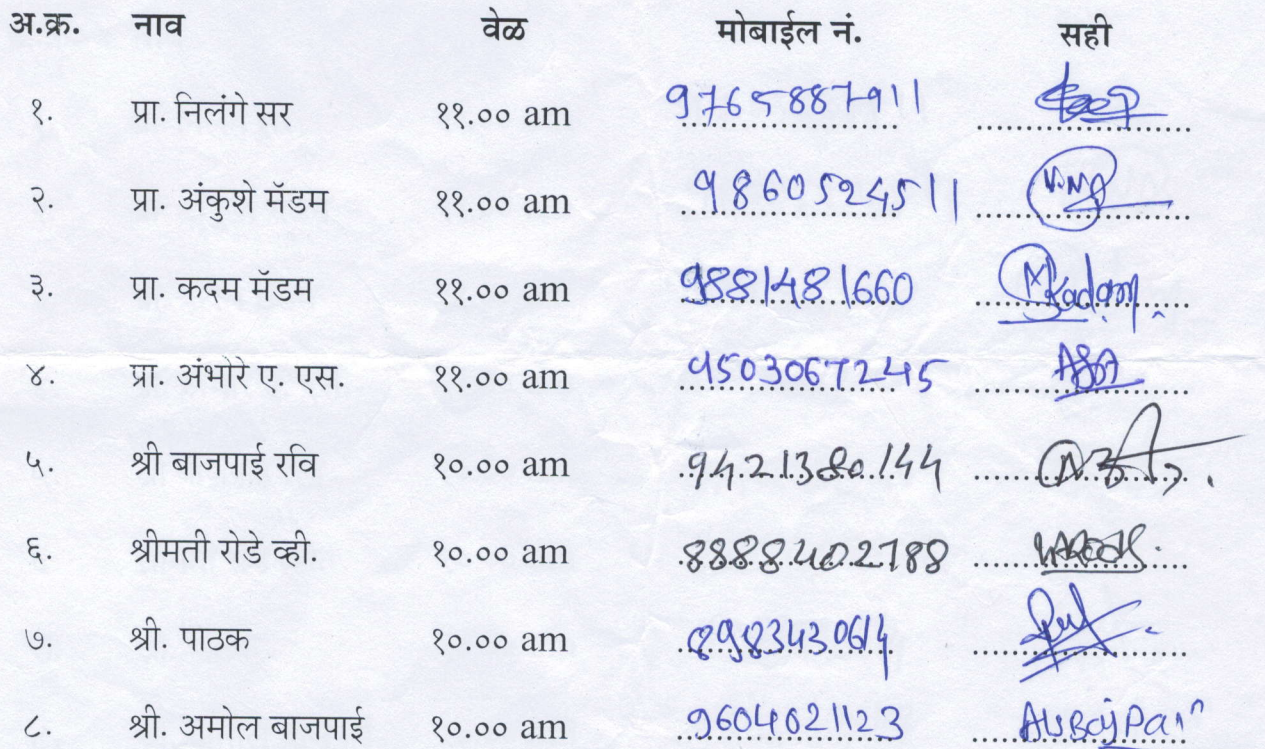 अ.क्र. नाव वेळ मोबाईल नं. सही
१. प्रा. निलंगे सर ११.०० am 9765887911
२. प्रा. अंकुशे मॅडम ११.०० am 9860524511
३. प्रा. कदम मॅडम ११.०० am 9881481660 Kadam
४. प्रा. अंभोरे ए. एस. ११.०० am 9503067245
५. श्री बाजपाई रवि १०.०० am 9421380144
६. श्रीमती रोडे व्ही. १०.०० am 8888402788
७. श्री. पाठक १०.०० am 8983430614
८. श्री. अमोल बाजपाई १०.०० am 9604021123 AUBajpai